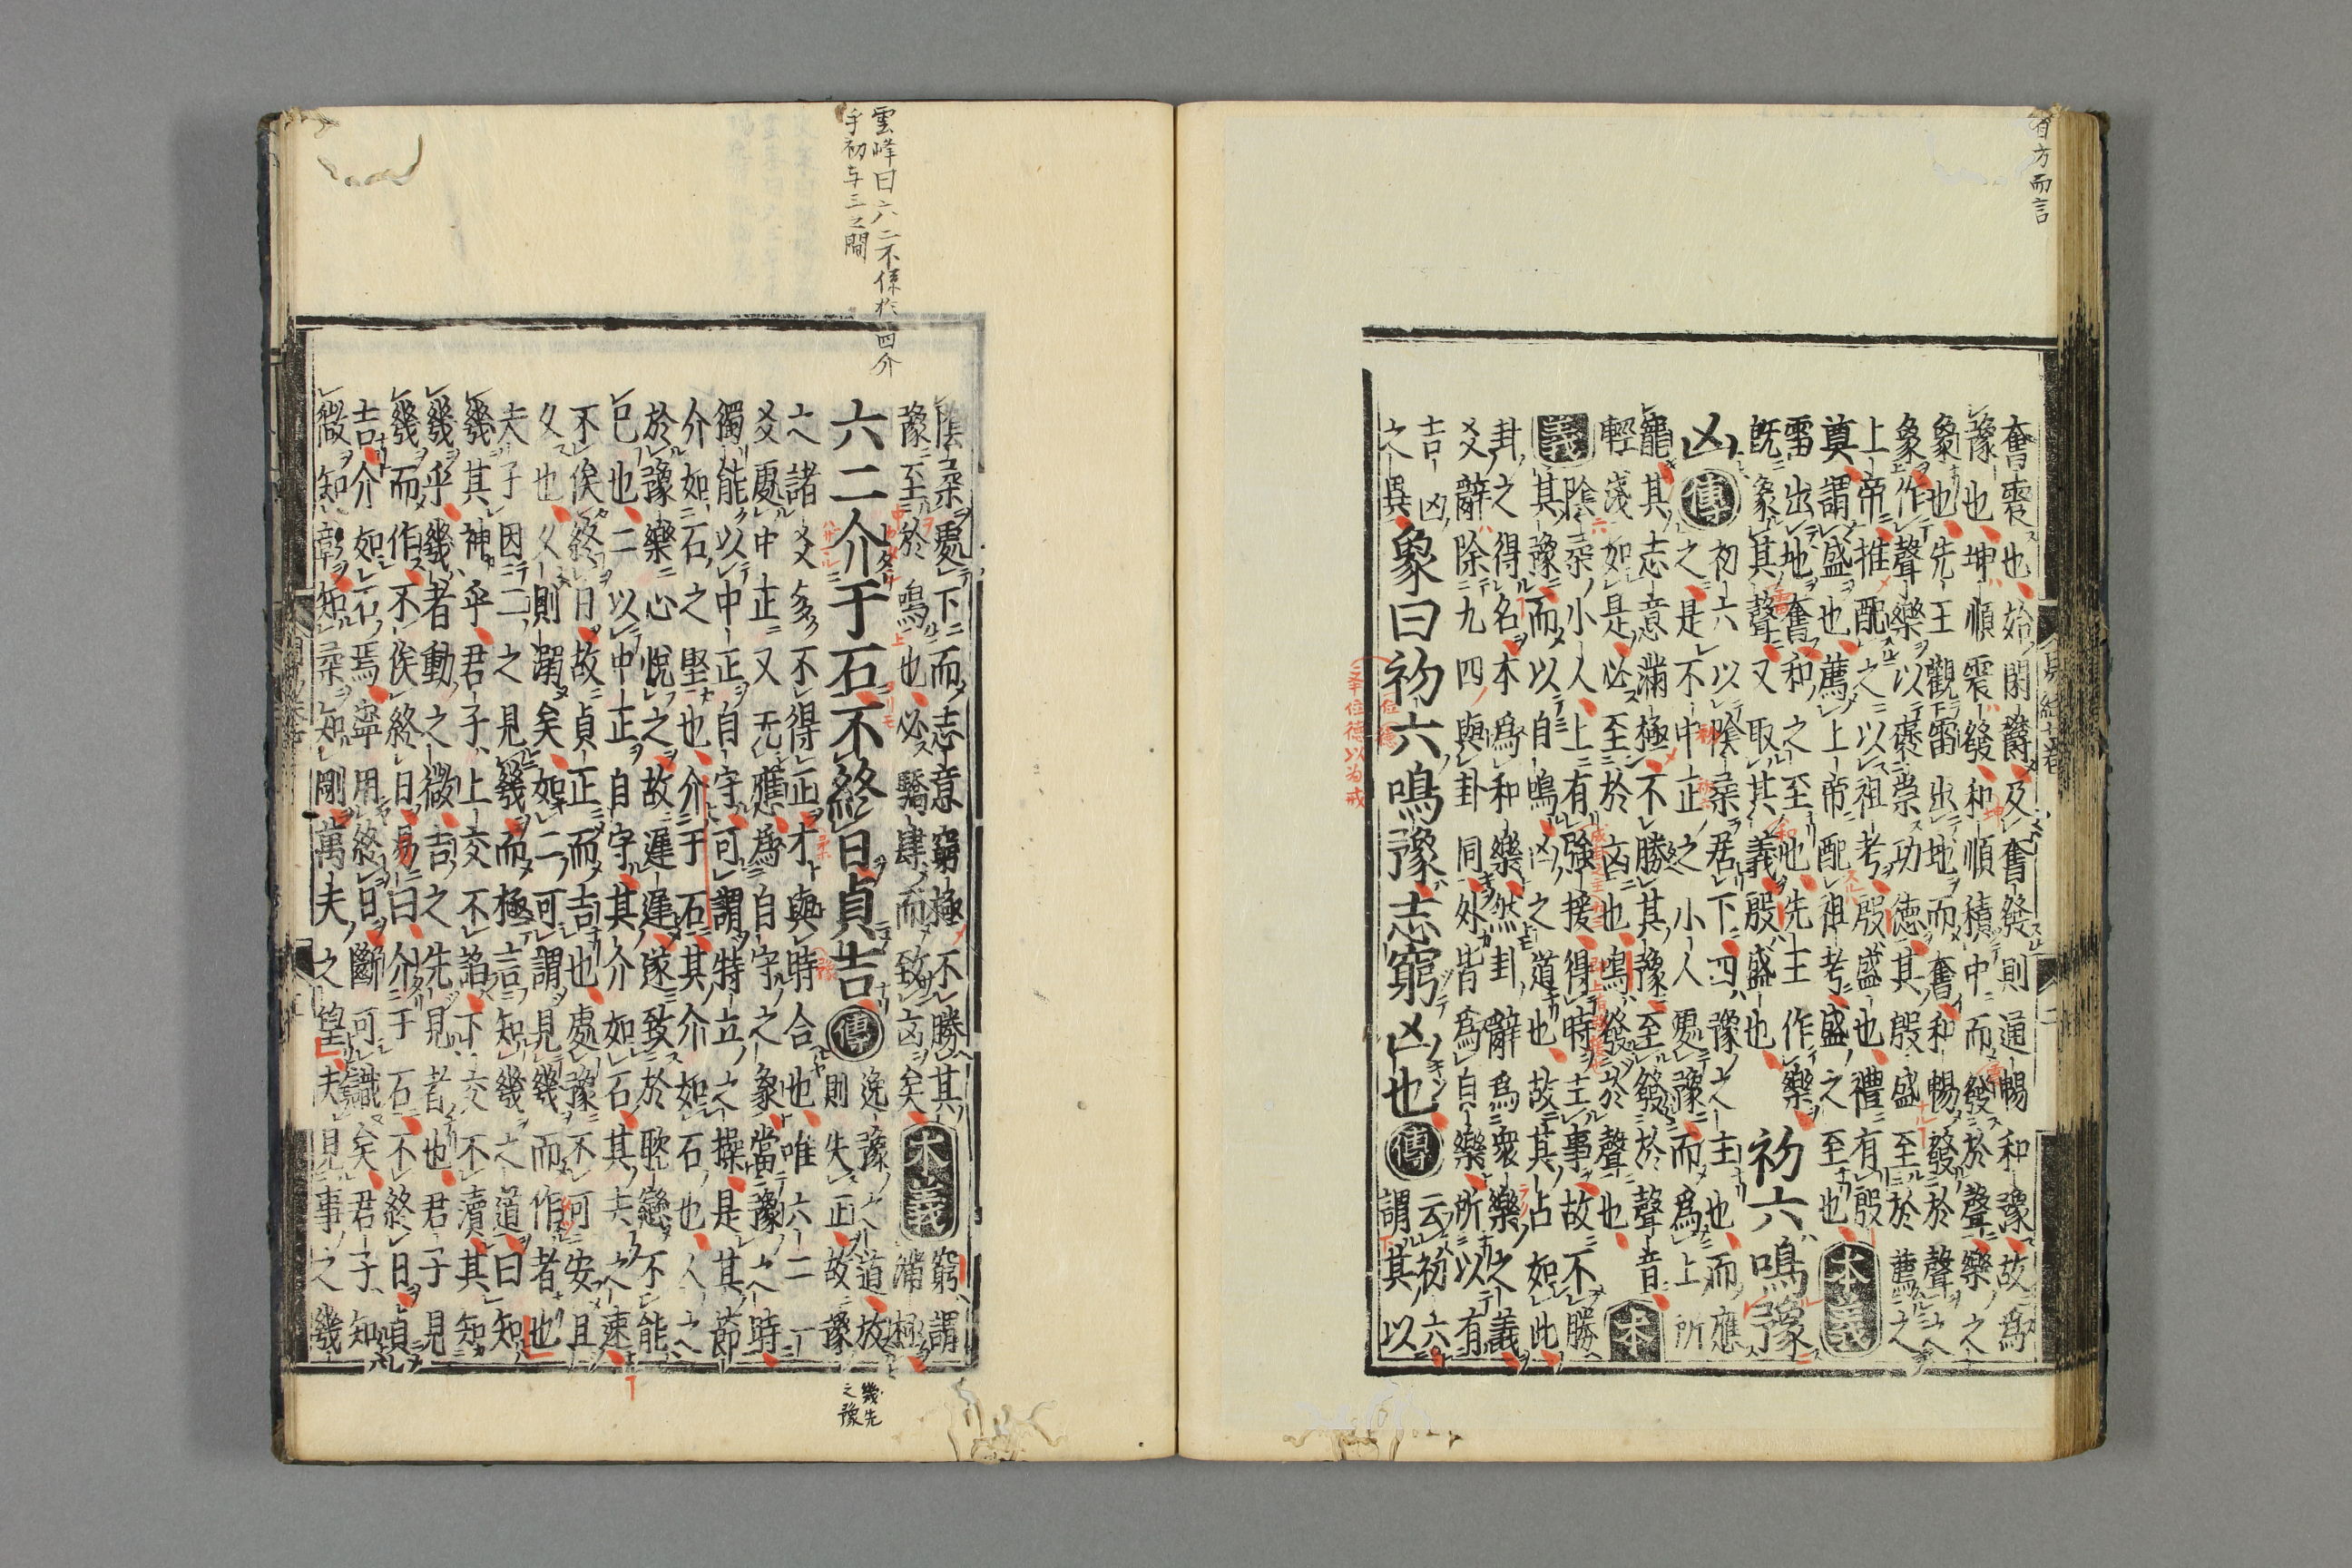 有方而言
奮震也始閉欝及奮發則通暢和豫故為
豫也坤順震發和順積中而發於聲樂之
象也先王觀雷出地而奮和暢發於聲之
象作聲樂以襃崇功德其殷盛至於薦之
上帝推配之以祖考殷盛也禮有殷
奠謂盛也薦上帝配祖考盛之至也本義
雷出地奮和之至也先王作樂
既象其聲又取其義殷盛也初六鳴豫
凶傳初六以陰柔居下四豫之主也而應
之是不中正之小人處豫而為上所
寵其志意滿極不勝其豫至發於聲音
輕淺如是必至於凶也鳴發於聲也本
義陰柔小人上有強援得時主事故不勝
其豫而以自鳴凶之道也故其占如此
卦之得名本為和樂然卦辭為衆樂之義
爻辭除九四與卦同外皆為自樂所以有
吉凶之異象曰初六鳴豫志窮凶也傳云初六
謂其以
陰柔處下而志意窮極不勝其
豫至於鳴也必驕肆而致凶矣本義窮謂
滿極
雲峰曰六二不係於四介
乎初与三之間
六二介于石不終日貞吉傳逸豫之道放
則失正故豫
幾先
之豫
之諸爻多不得正才與時合也唯六二一
爻處中正又无應為自守之象當豫之時
獨能以中正自守可謂特立之操是其節
介如石之堅也介于石其介如石也人之
於豫樂心悅之故遲遲遂致於耽戀不能
已也二以中正自守其介如石其去之速
不俟終日故貞正而吉也處豫不可安且
久也久則溺矣如二可謂見幾而作者也
夫子因二之見幾而極言知幾之道曰知
幾其神乎君子上交不諂下交不瀆其知
幾乎幾者動之微吉之先見者也君子見
幾而作不俟終日易曰介于石不終日貞
吉介如石焉寧用終日斷可識矣君子知
微知彰知柔知剛萬夫之望夫見事之幾